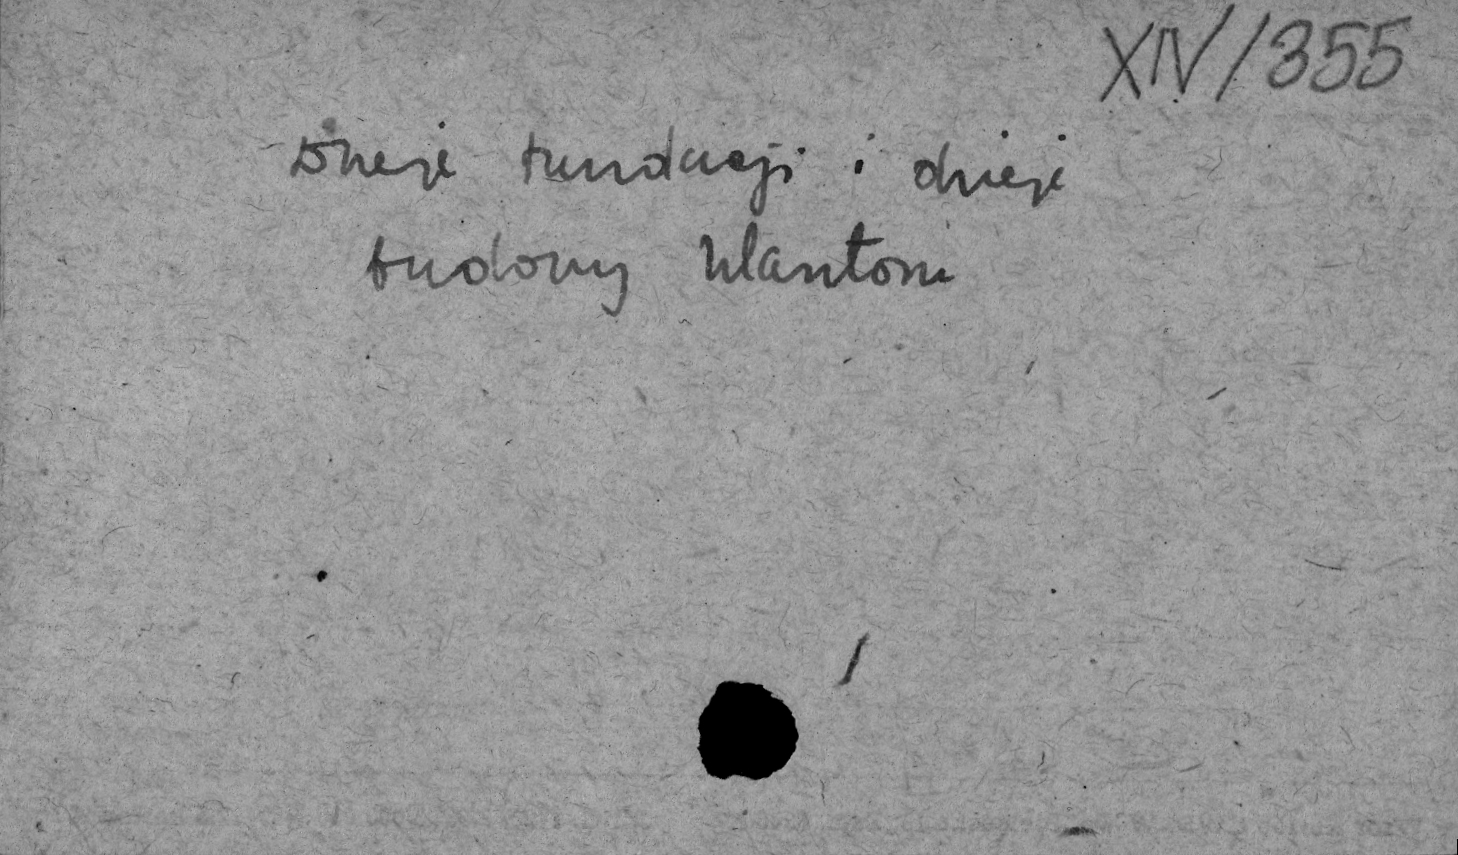 XIV/355
Dzieje fundacji i dzieje
budowy klasztoru